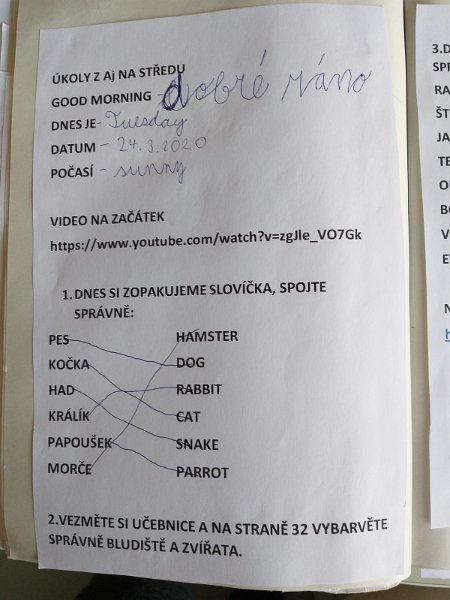 ÚKOLY Z Aj NA STŘEDU
GOOD MORNING - dobré ráno
DNES JE - Tuesday
DATUM - 24.3.2020
POČASÍ - sunny
VIDEO NA ZAČÁTEK
https://www.youtube.com/watch?v=zgJle_VO7Gk
1. DNES SI ZOPAKUJEME SLOVÍČKA, SPOJTE
SPRÁVNĚ:
PES HAMSTER
KOČKA DOG
HAD RABBIT
KRÁLÍK CAT
PAPOUŠEK SNAKE
MORČE PARROT
2.VEZMĚTE SI UČEBNICE A NA STRANĚ 32 VYBARVĚTE
SPRÁVNĚ BLUDIŠTĚ A ZVÍŘATA.
3.D
SPR
RA
ŠT
JA
TE